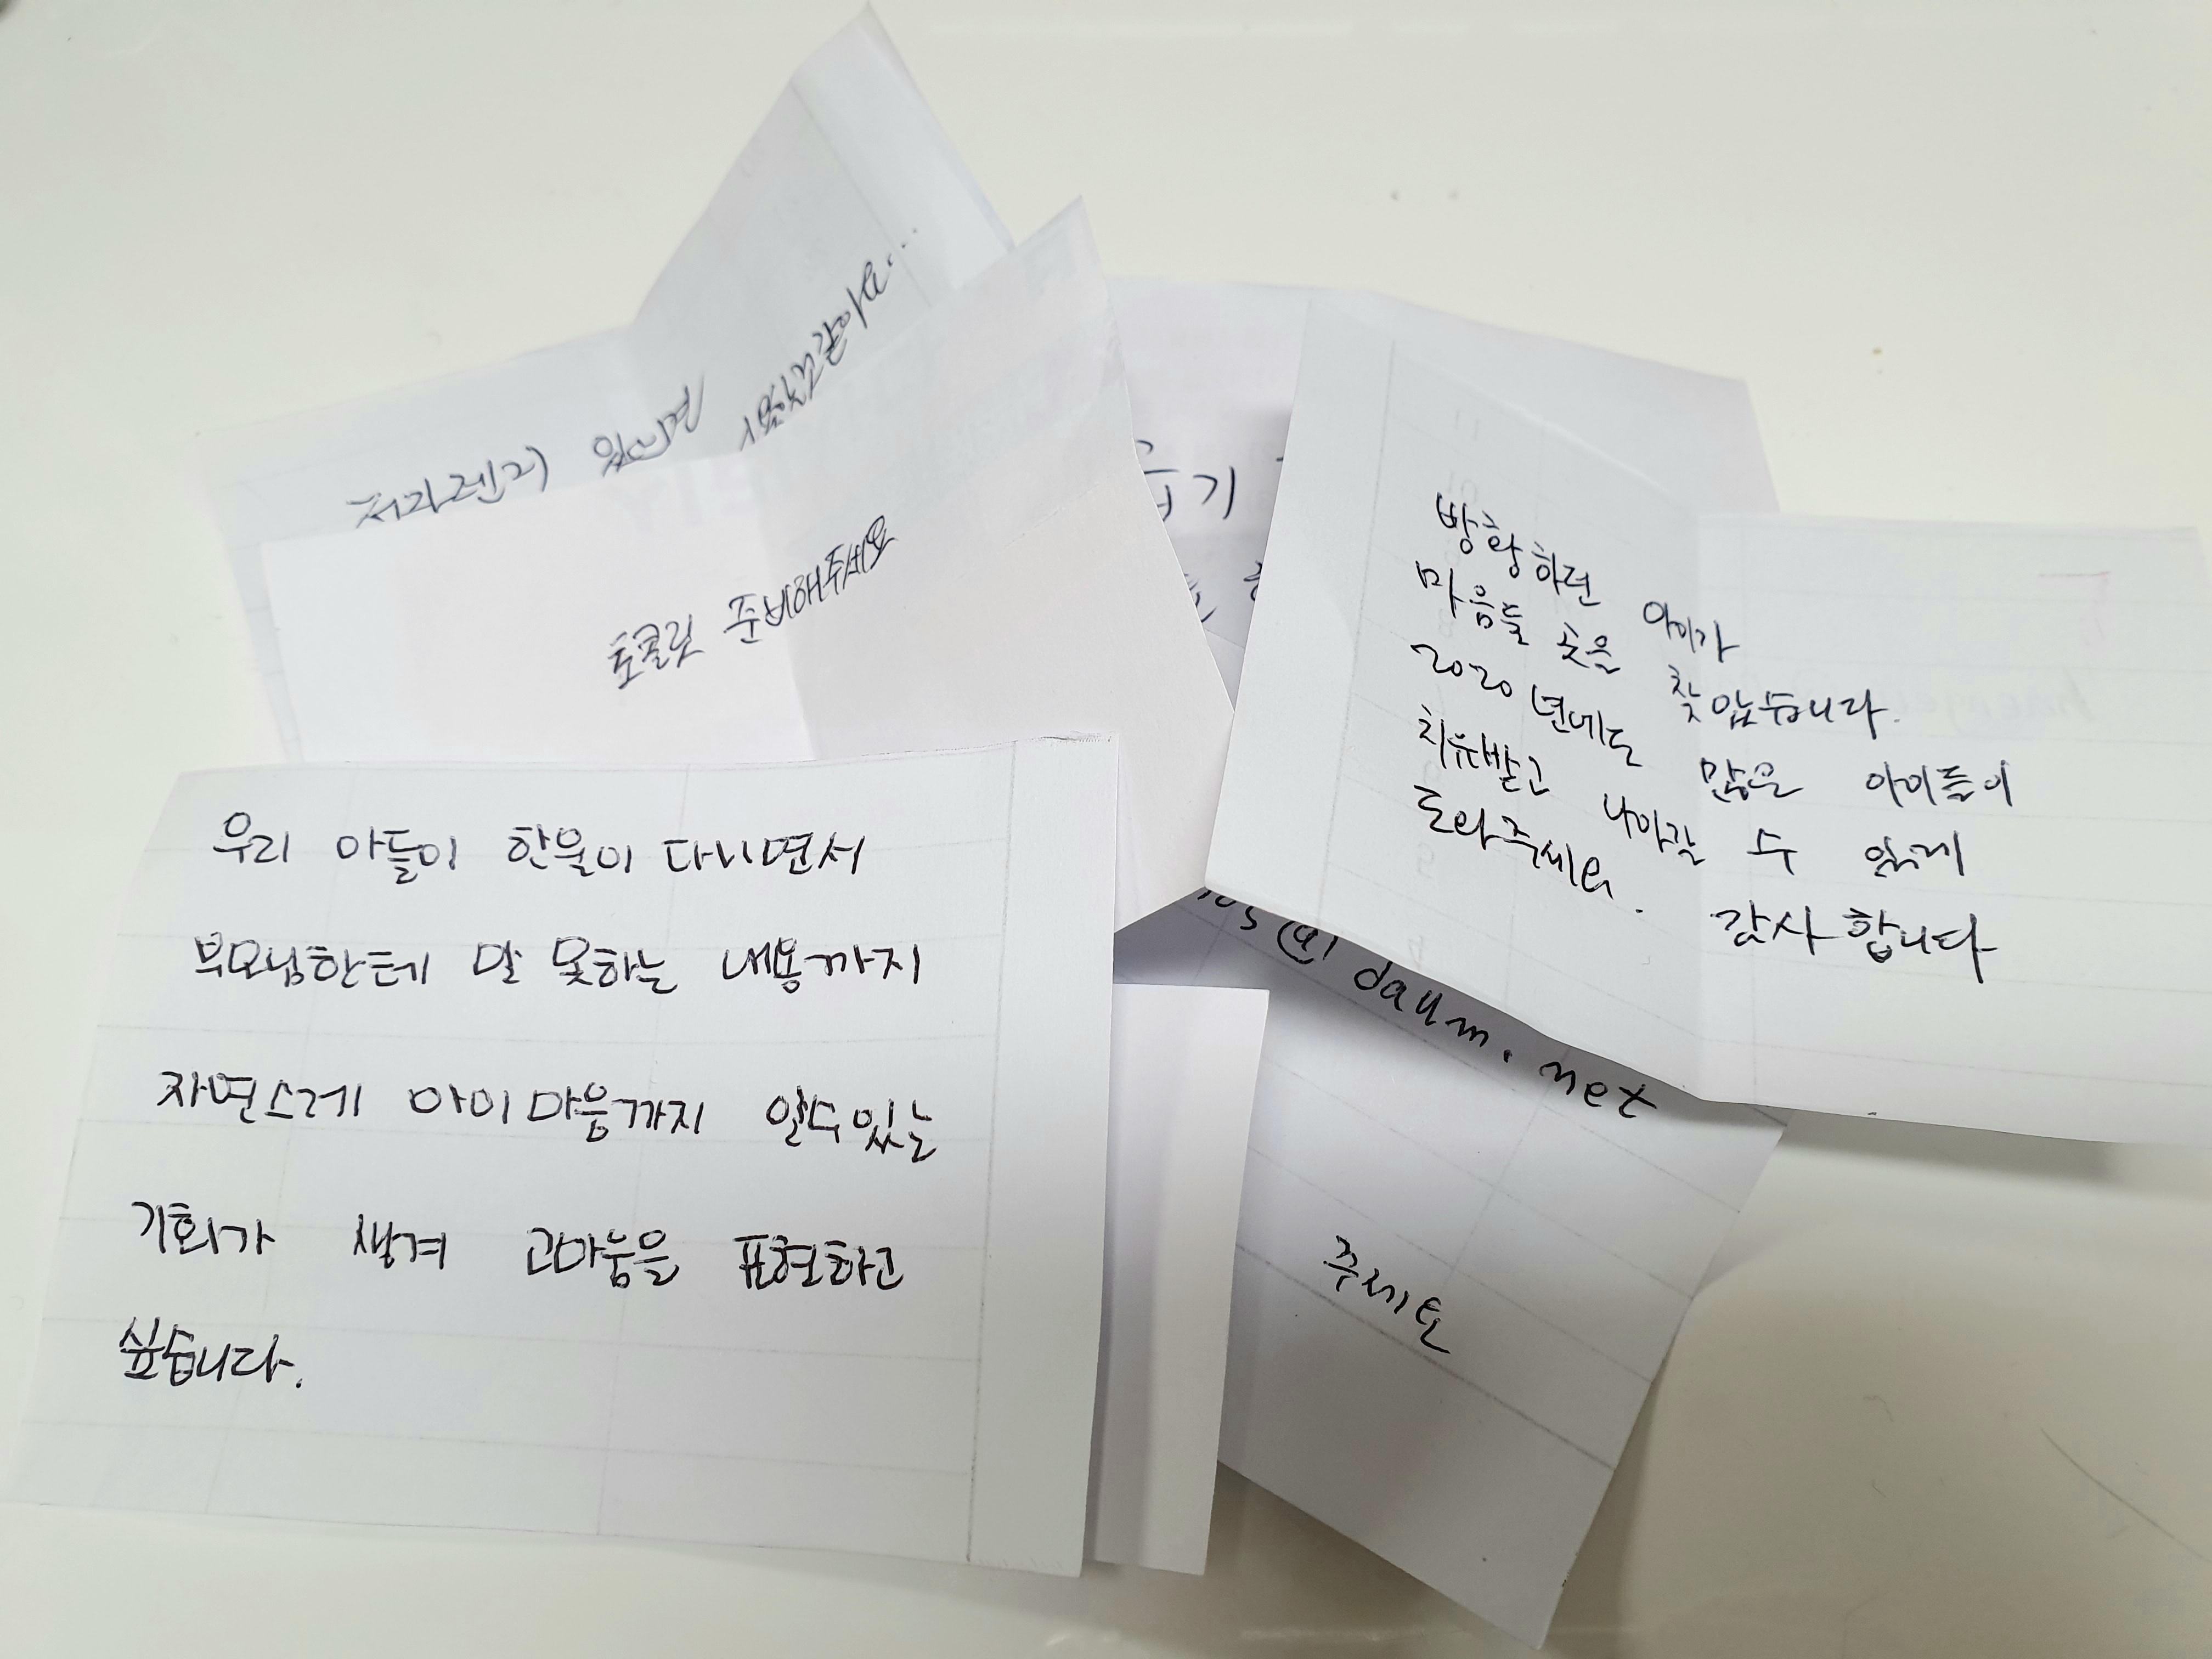 전자렌지 있으면 좋을것같아요...
초콜릿 준비해주세요
기
방황하던 아이가
마음둘 곳을 찾았습니다.
2020년에도 많은 아이들이
치유받고 나아갈 수 있게
도와주세요.
감사합니다
@daum.net
주세요
우리 아들이 한울이 다니면서
부모님한테 말 못하는 내용까지
자연스레 아이마음까지 알수있는
기회가 생겨 고마움을 표현하고
싶습니다.